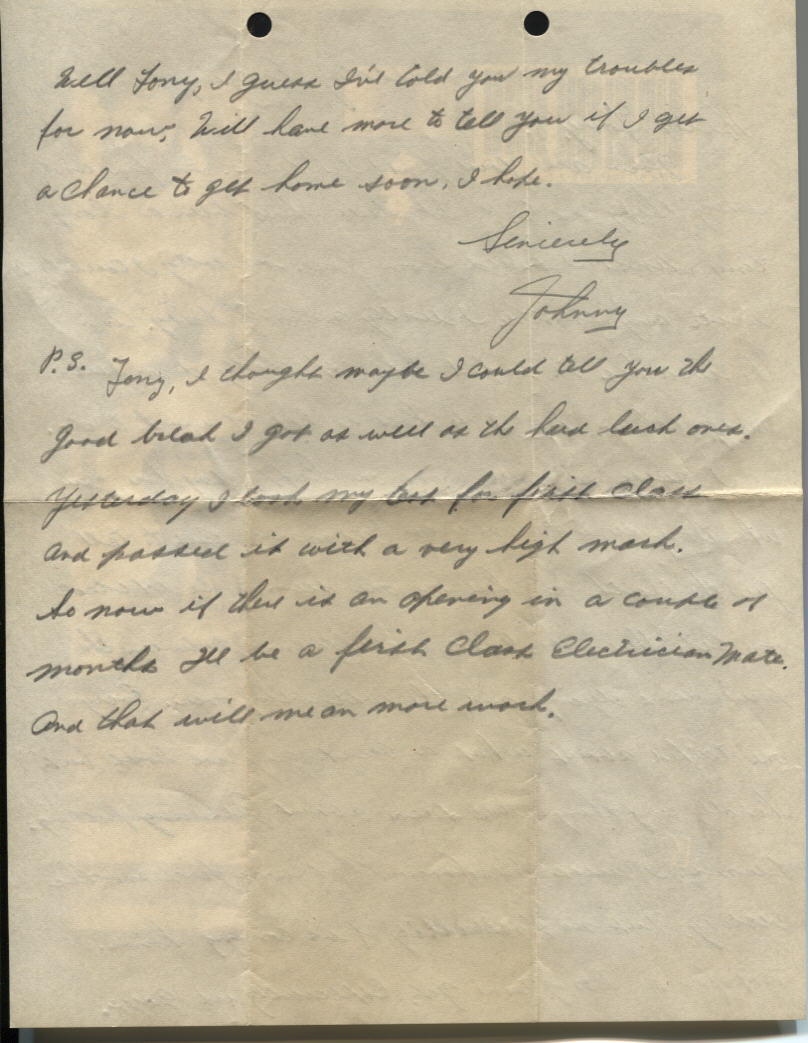 Well Tony, I guess I've told you my troubles
for now, Will have more to tell you if I get
a chance to get home soon, I hope.
Sincerely
Johnny
P.S. Tony, I thought maybe I could tell you the
good break I got as well as the hard luck ones.
Yesterday I took my test for first class
and passed it with a very high mark.
So now if there is an opening in a couple of
months I'll be a first class Electrician Mate.
And that will mean more work.